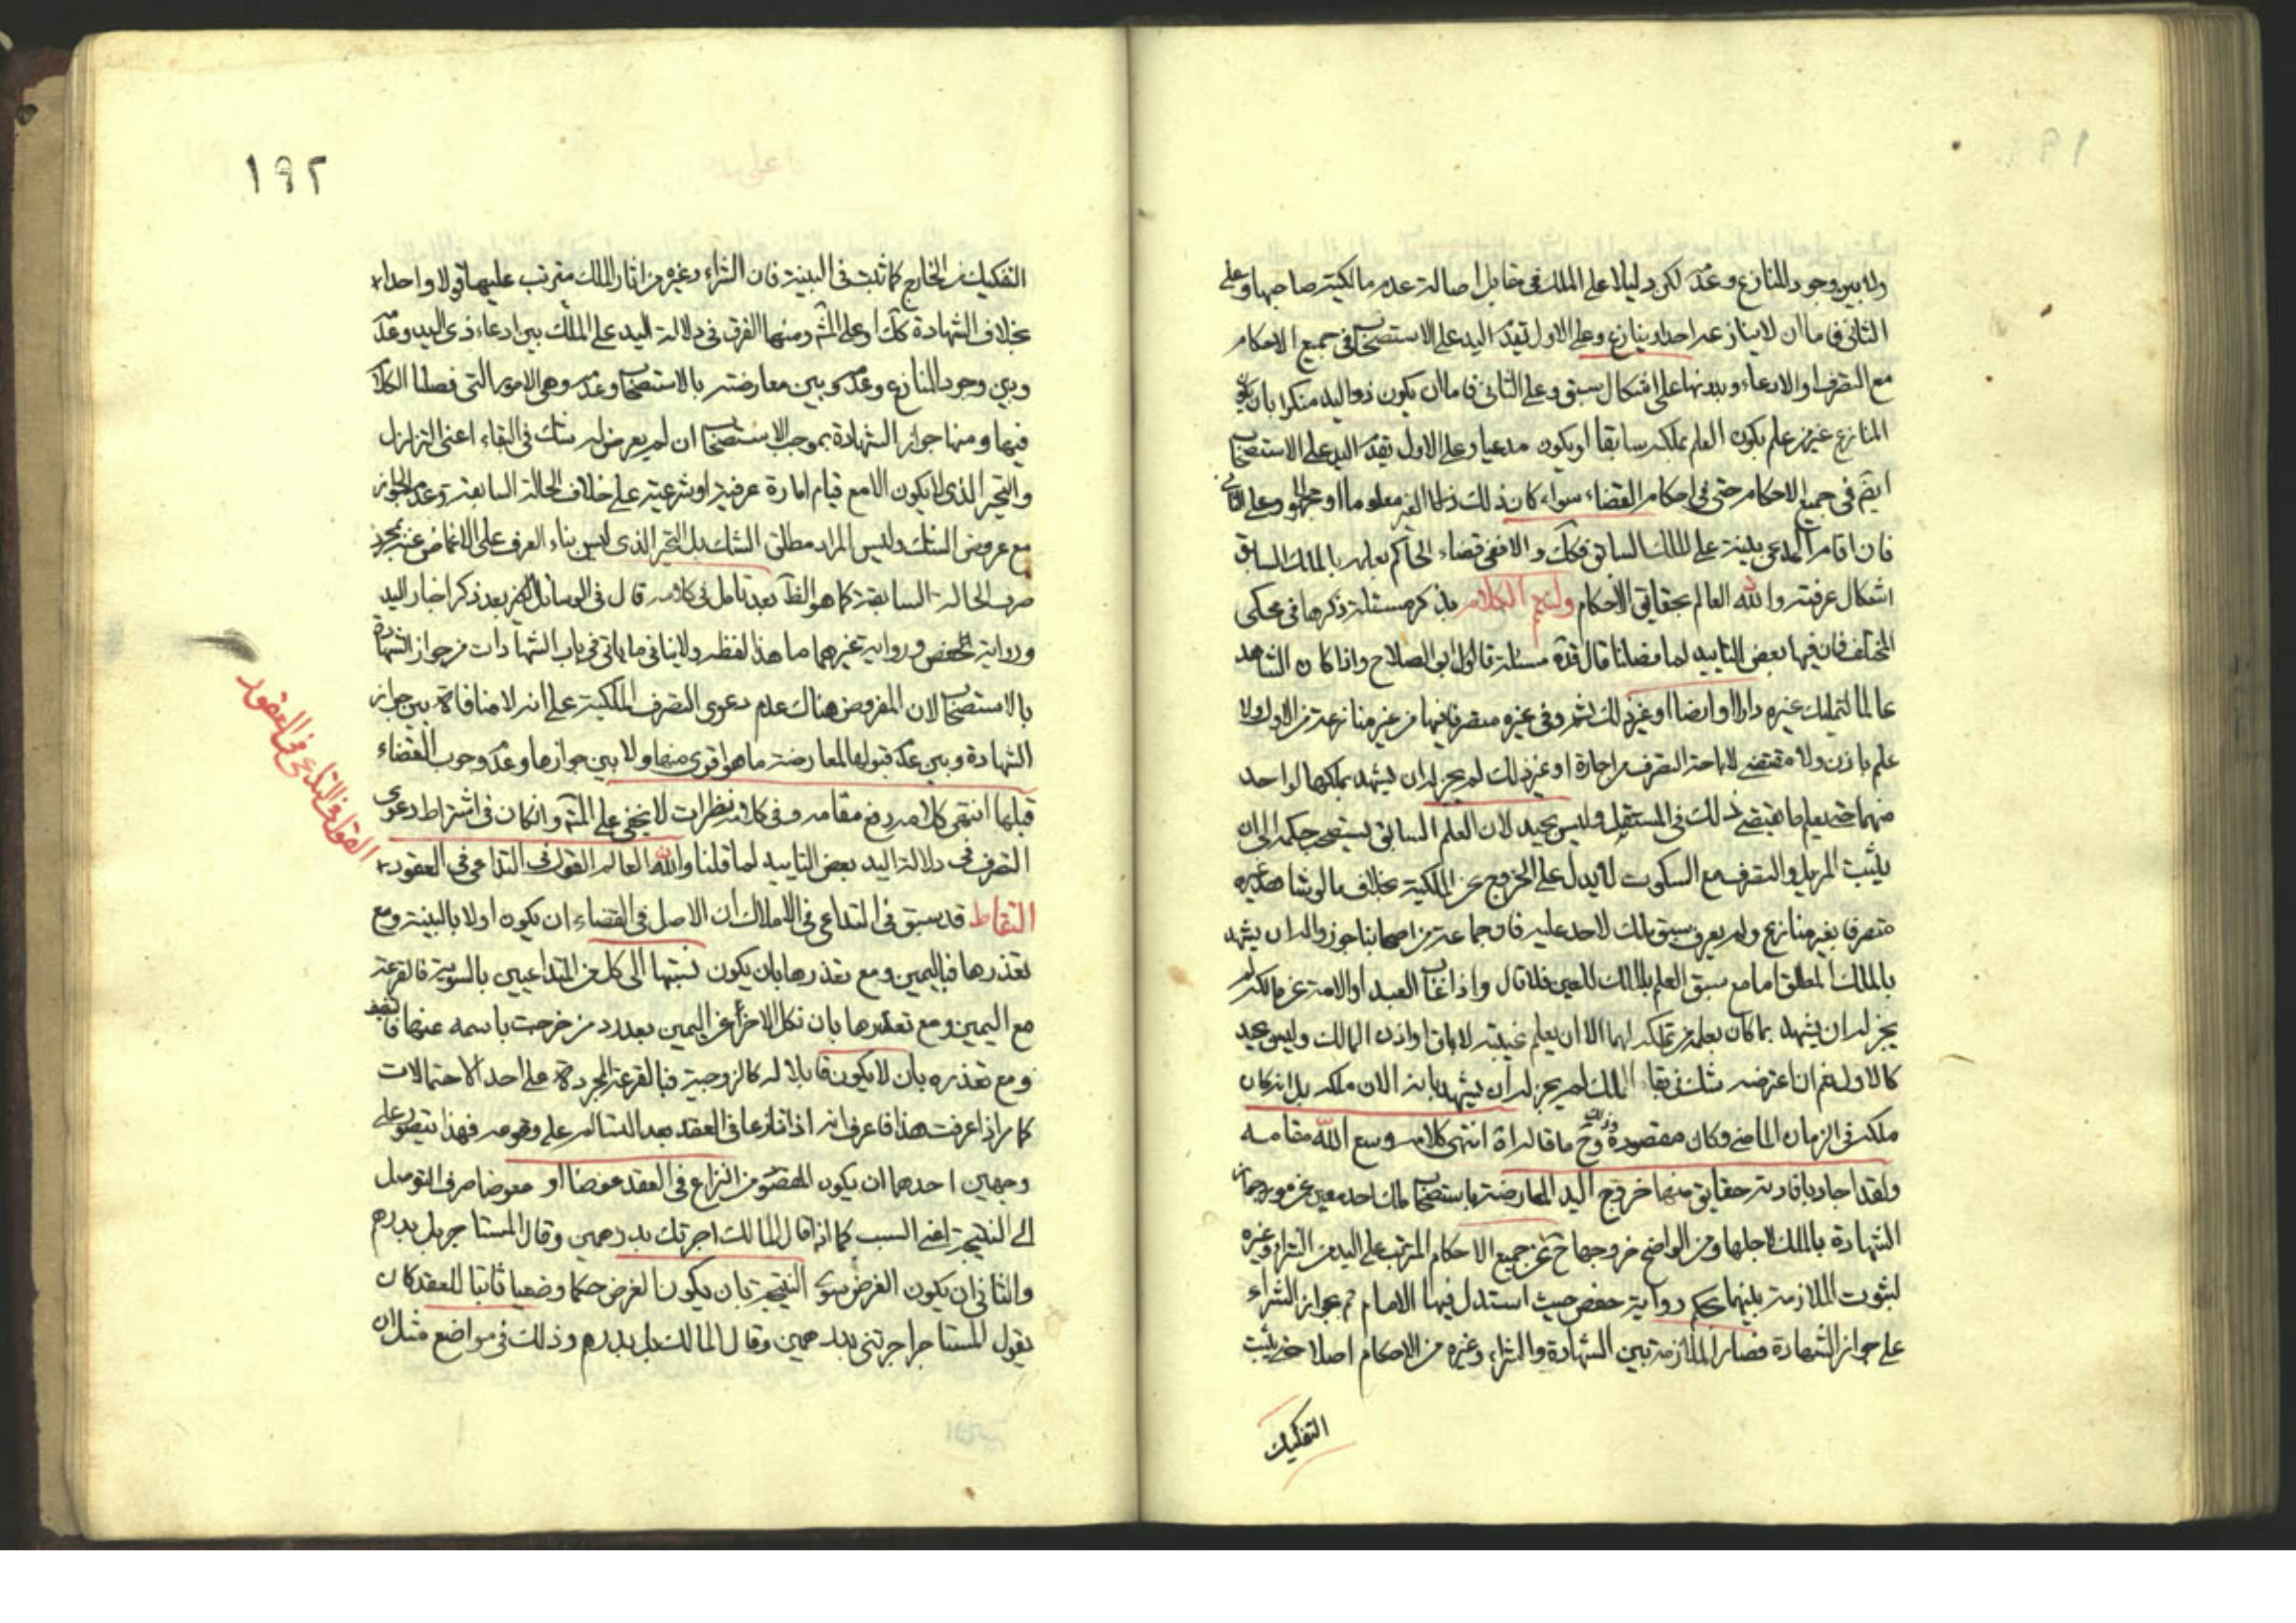 ولا بين وجود المنازع وعدمه لكن دليلا على الملك في مقابل اصالة عدم مالكية صاحبها وعلى
الثاني فاما ان لا ينازعه احد او ينازع وعلى الاول تقدم اليد على الاستصحاب في جميع الاحكام
مع التصرف او الادعاء وبدونها على اشكال سبق وعلى الثاني فاما ان يكون ذو اليد منكرا بان يكون
المنازع غير من علم يكون العلم بملكه سابقا او يكون مدعيا وعلى الاول تقدم اليد على الاستصحاب
ايضم في جميع الاحكام حتى في احكام القضاء سواء كان ذلك الغير معلوما او مجهولا وعلى الثاني
فان اقام المدعي بينة على الملك السابق فكك والا ففي قضاء الحاكم بعلمه بالملك السابق
اشكال عرفته والله العالم بحقايق الاحكام ولنتم الكلام بذكر مسئلة ذكرها في محكي
المختلف فان فيها بعض التاييد لما فصلنا قال قده مسئلة قال ابو الصلاح واذا كان الشاهد
عالما لتمليك غيره دارا او ارضا او غير ذلك ثم رأى غيره متصرفا فيها من غير منازعة من الاول ولا
علم باذن ولا مقتضى لاباحة التصرف من اجارة او غير ذلك لم يجز له ان يشهد بملكها لواحد
منهما حتى يعلم ما يقتضي ذلك في المستقبل وليس بجيد لان العلم السابق يستصحب حكمه الى ان
يثبت المزيل والتصرف مع السكوت لا يدل على الخروج عن الملكية بخلاف ما لو شاهد غيره
متصرفا بغير منازع ولم يعرف سبق ملك لاحد عليه فان جماعة من اصحابنا جوزوا له ان يشهد
بالملك المطلق اما مع سبق العلم بالملك للغير فلا قال واذا غاب العبد او الامة عن مالكه لم
يجز له ان يشهد بما كان يعلمه من تملكه لهما الا ان يعلم غيبته لاباق او اذن المالك وليس بجيد
كالاول نعم ان اعترضه شك في بقاء الملك لم يجز له ان يشهد بانه الان ملكه بل انه كان
ملكه في الزمان الماضي وكان مقصوده ذلك وح ما قالاه انتهى كلامه وسع الله مقامه
ولقد اجاد بافادته حقايق منها خروج اليد المعارضة باستصحاب ملك احد معين عن مورد جواز
الشهادة بالملك لاجلها ومن الواضح خروجها ح عن جميع الاحكام المرتب على اليد من الشراء وغيره
لثبوت الملازمة بينهما بحكم رواية حفص حيث استدل فيها الامام ع بجواز الشراء
على جواز الشهادة فصار الملازمة بين الشهادة والشراء وغيره من الاحكام اصلا حتى يثبت
التفكيك
١٩٢
التفكيك من الخارج كما ثبت في البينة فان الشراء وغيره من اثار الملك مترتب عليها قولا واحدا
بخلاف الشهادة كك او على المش ومنها الفرق في دلالة اليد على الملك بين ادعاء ذي اليد وعدمه
وبين وجود المنازع وعدمه وبين معارضته بالاستصحاب وعدمه وهي الامور التي فصلنا الكلام
فيها ومنها جواز الشهادة بموجب الاستصحاب ان لم يعرض له شك في البقاء اعني التزلزل
والتحير الذي لا يكون الا مع قيام امارة عرفية او شرعية على خلاف الحالة السابقة وعدم الجواز
مع عروض الشك وليس المراد مطلق الشك بل التحير الذي ليس بناء العرف على الاغماض عنه بمجرد
صرف الحالة السابقة كما هو الظ بعد تامل في كلامه قال في الوسائل بعد ذكر اخبار اليد
ورواية حفص ورواية غيرهما ما هذا لفظه ولا ينافي ما ياتي في باب الشهادات من جواز الشهادة
بالاستصحاب لان المفروض هناك عدم دعوى المتصرف الملكية على انه لا منافاة بين جواز
الشهادة وبين عدم قبولها لمعارضة ما هو اقوى منها ولا بين جوازها وعدم وجوب القضاء
قبلها انتهى كلامه رفع مقامه وفي كلامه نظرات لا يخفى على المتم وان كان في اشتراط دعوى
التصرف في دلالة اليد بعض التاييد لما قلنا والله العالم القول في التداعي في العقود
القول في التداعي في العقود
التقاط قد سبق في التداعي في الاملاك ان الاصل في القضاء ان يكون اولا بالبينة ومع
تعذرها فباليمين ومع تعذرها بان يكون نسبتها الى كل من المتداعيين بالسوية فالقرعة
مع اليمين ومع تعذرها بان نكل الاخر عن اليمين بعدد من خرجت باسمه عنها
ومع تعذره بان لا يكون قابلا له كالزوجية فبالقرعة المجردة على احد الاحتمالات
كما مر اذا عرفت هذا فاعرف انه اذا تنازعا في العقد بعد التسالم على وقوعه فهذا يتصور على
وجهين احدهما ان يكون المقصود من النزاع في العقد عوضا او معوضا صرف التوصل
الى النتيجة اعني السبب كما اذا قال المالك اجرتك بدرهمين وقال المستاجر بل بدرهم
والثاني ان يكون الغرض سوى النتيجة بان يكون الغرض حكما وضعيا ثابتا للعقد كان
يقول المستاجر اجرتني بدرهمين وقال المالك بل بدرهم وذلك في مواضع مثل ان